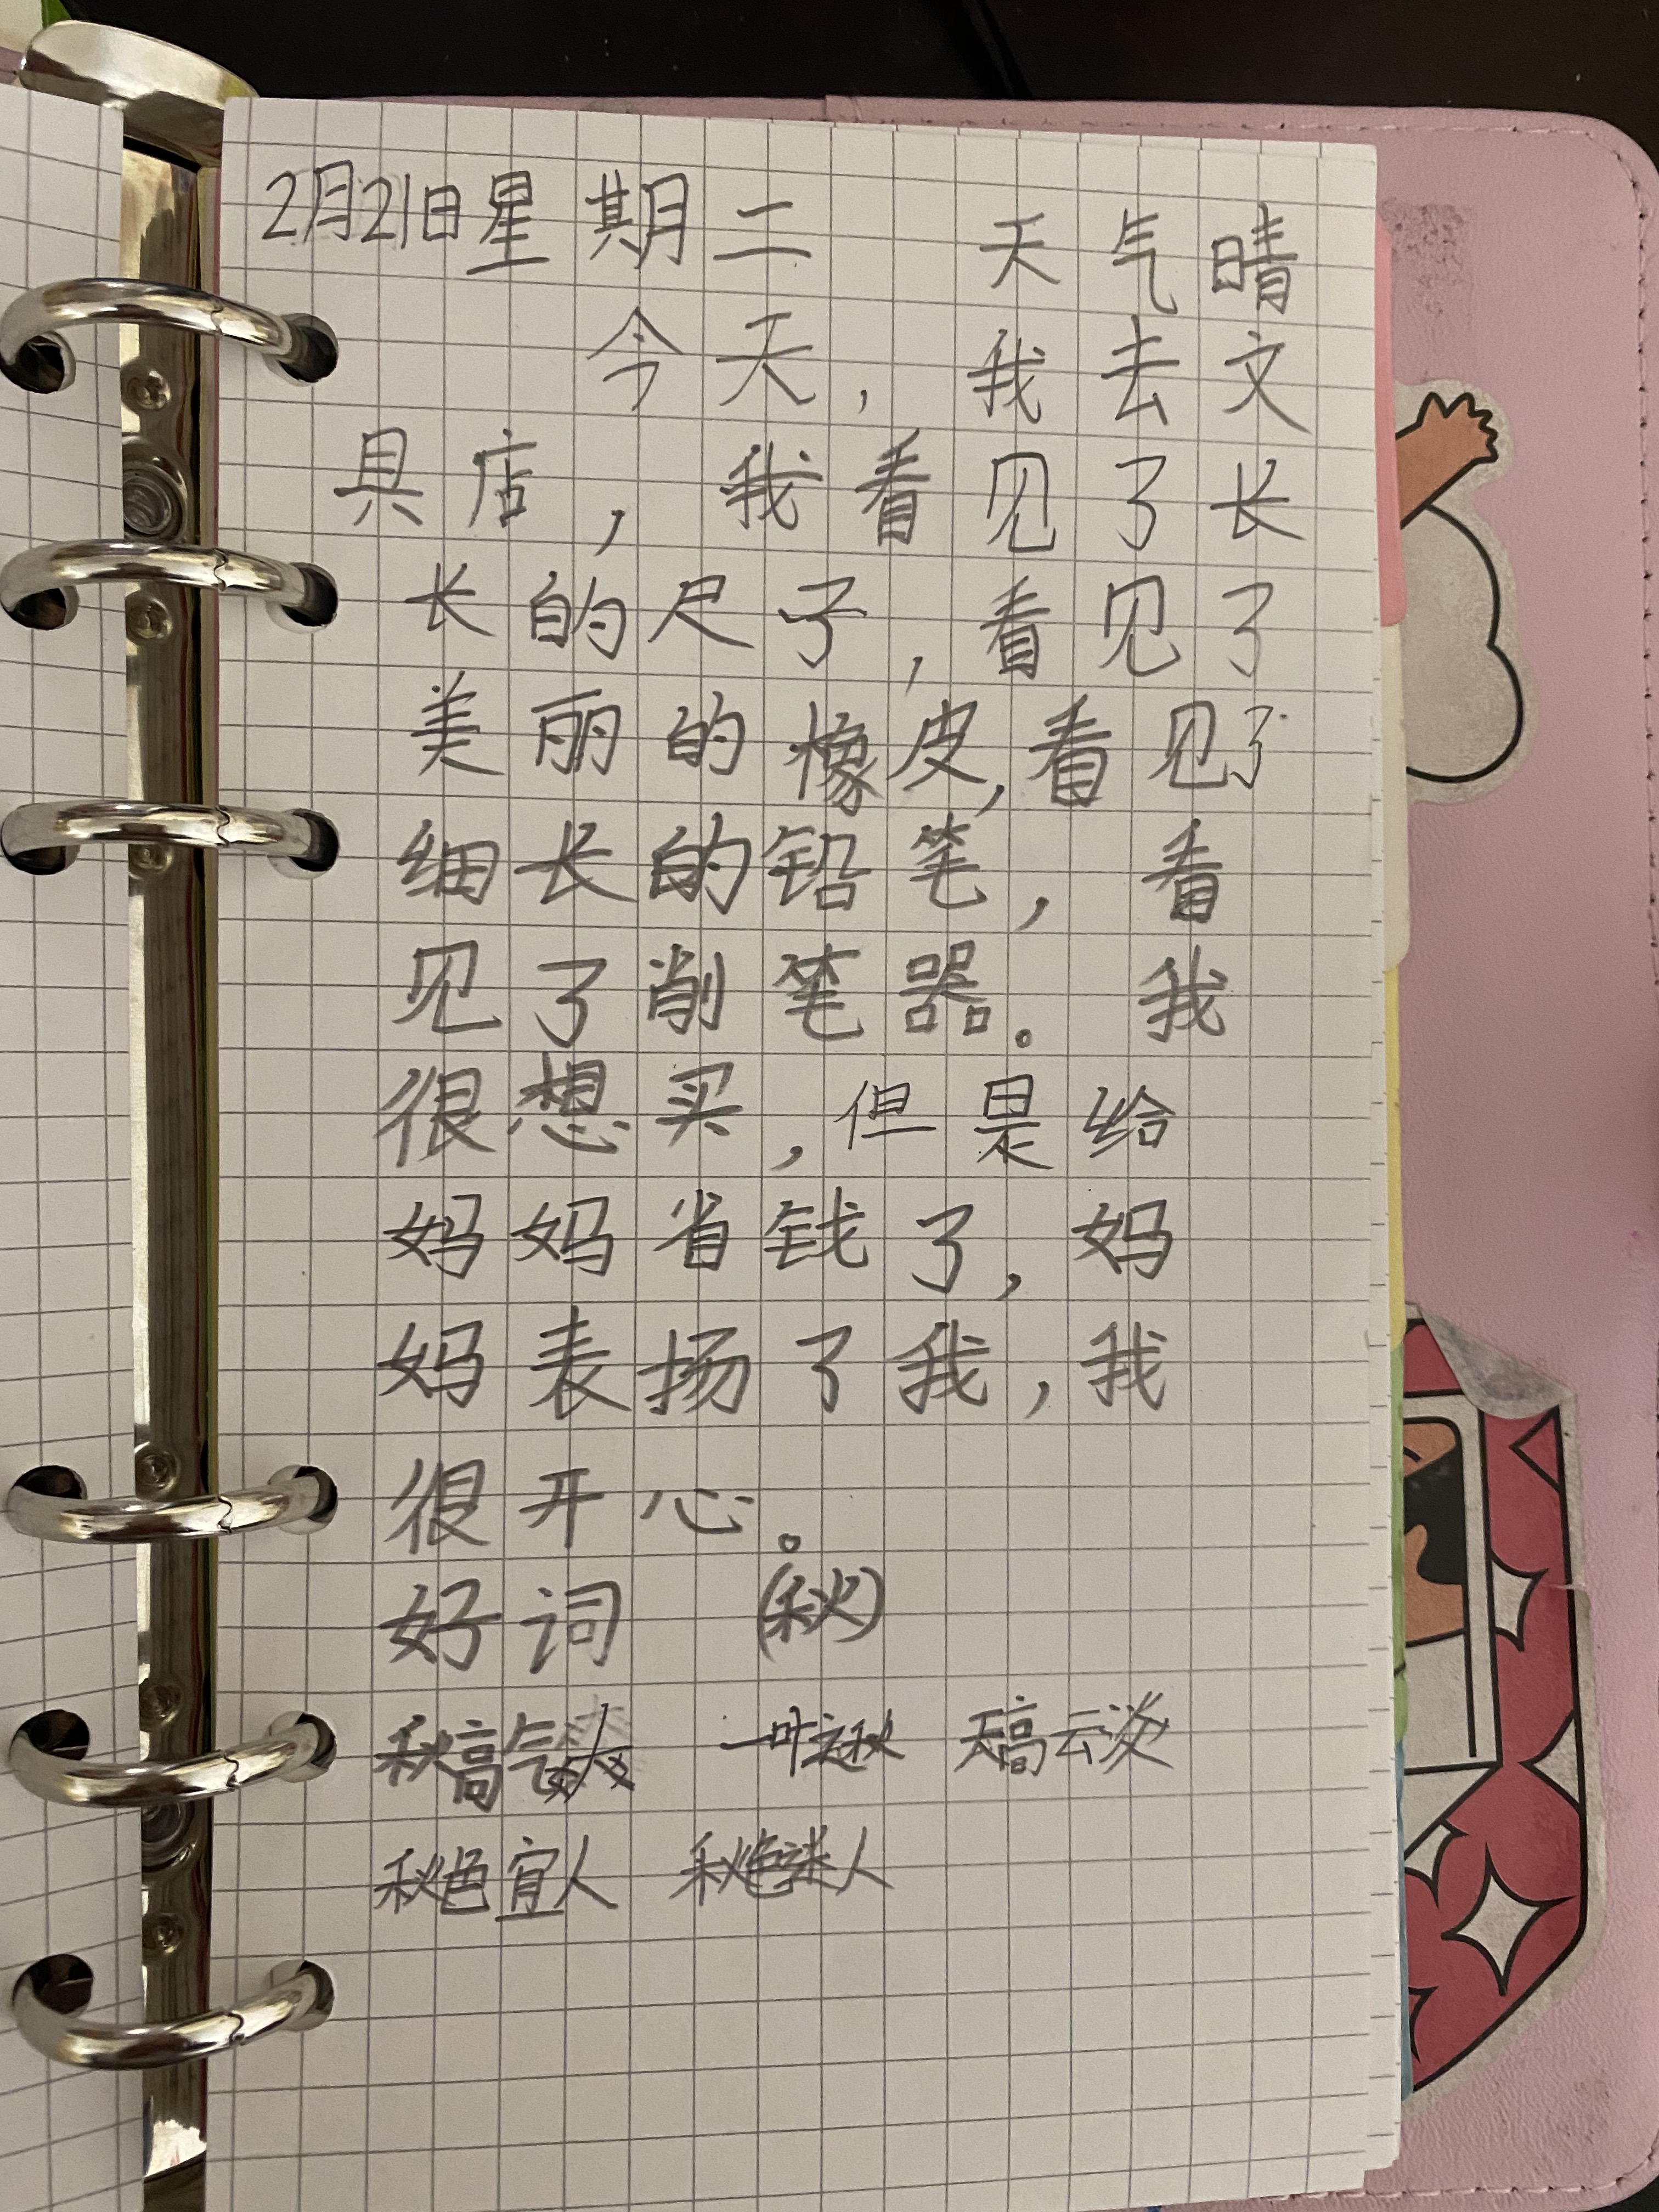 2月21日星期二 天气晴
今天，我去文
具店，我看见了长
长的尺子，看见了
美丽的橡皮，看见了
细长的铅笔，看
见了削笔器。我
很想买，但是给
妈妈省钱了，妈
妈表扬了我，我
很开心。
好词 (秋)
秋高气爽 一叶之秋 天高云淡
秋色宜人 秋色迷人